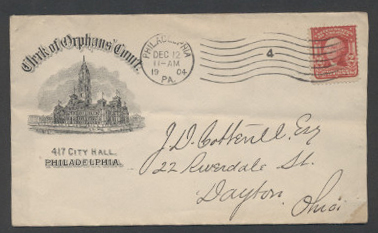 Clerk of Orphans' Court.
417 CITY HALL.
PHILADELPHIA.
PHILADELPHIA
DEC 12
11-AM
1904
PA.
4
J. D. Cotterill, Esq
22 Riverdale St.
Dayton,
Ohio.